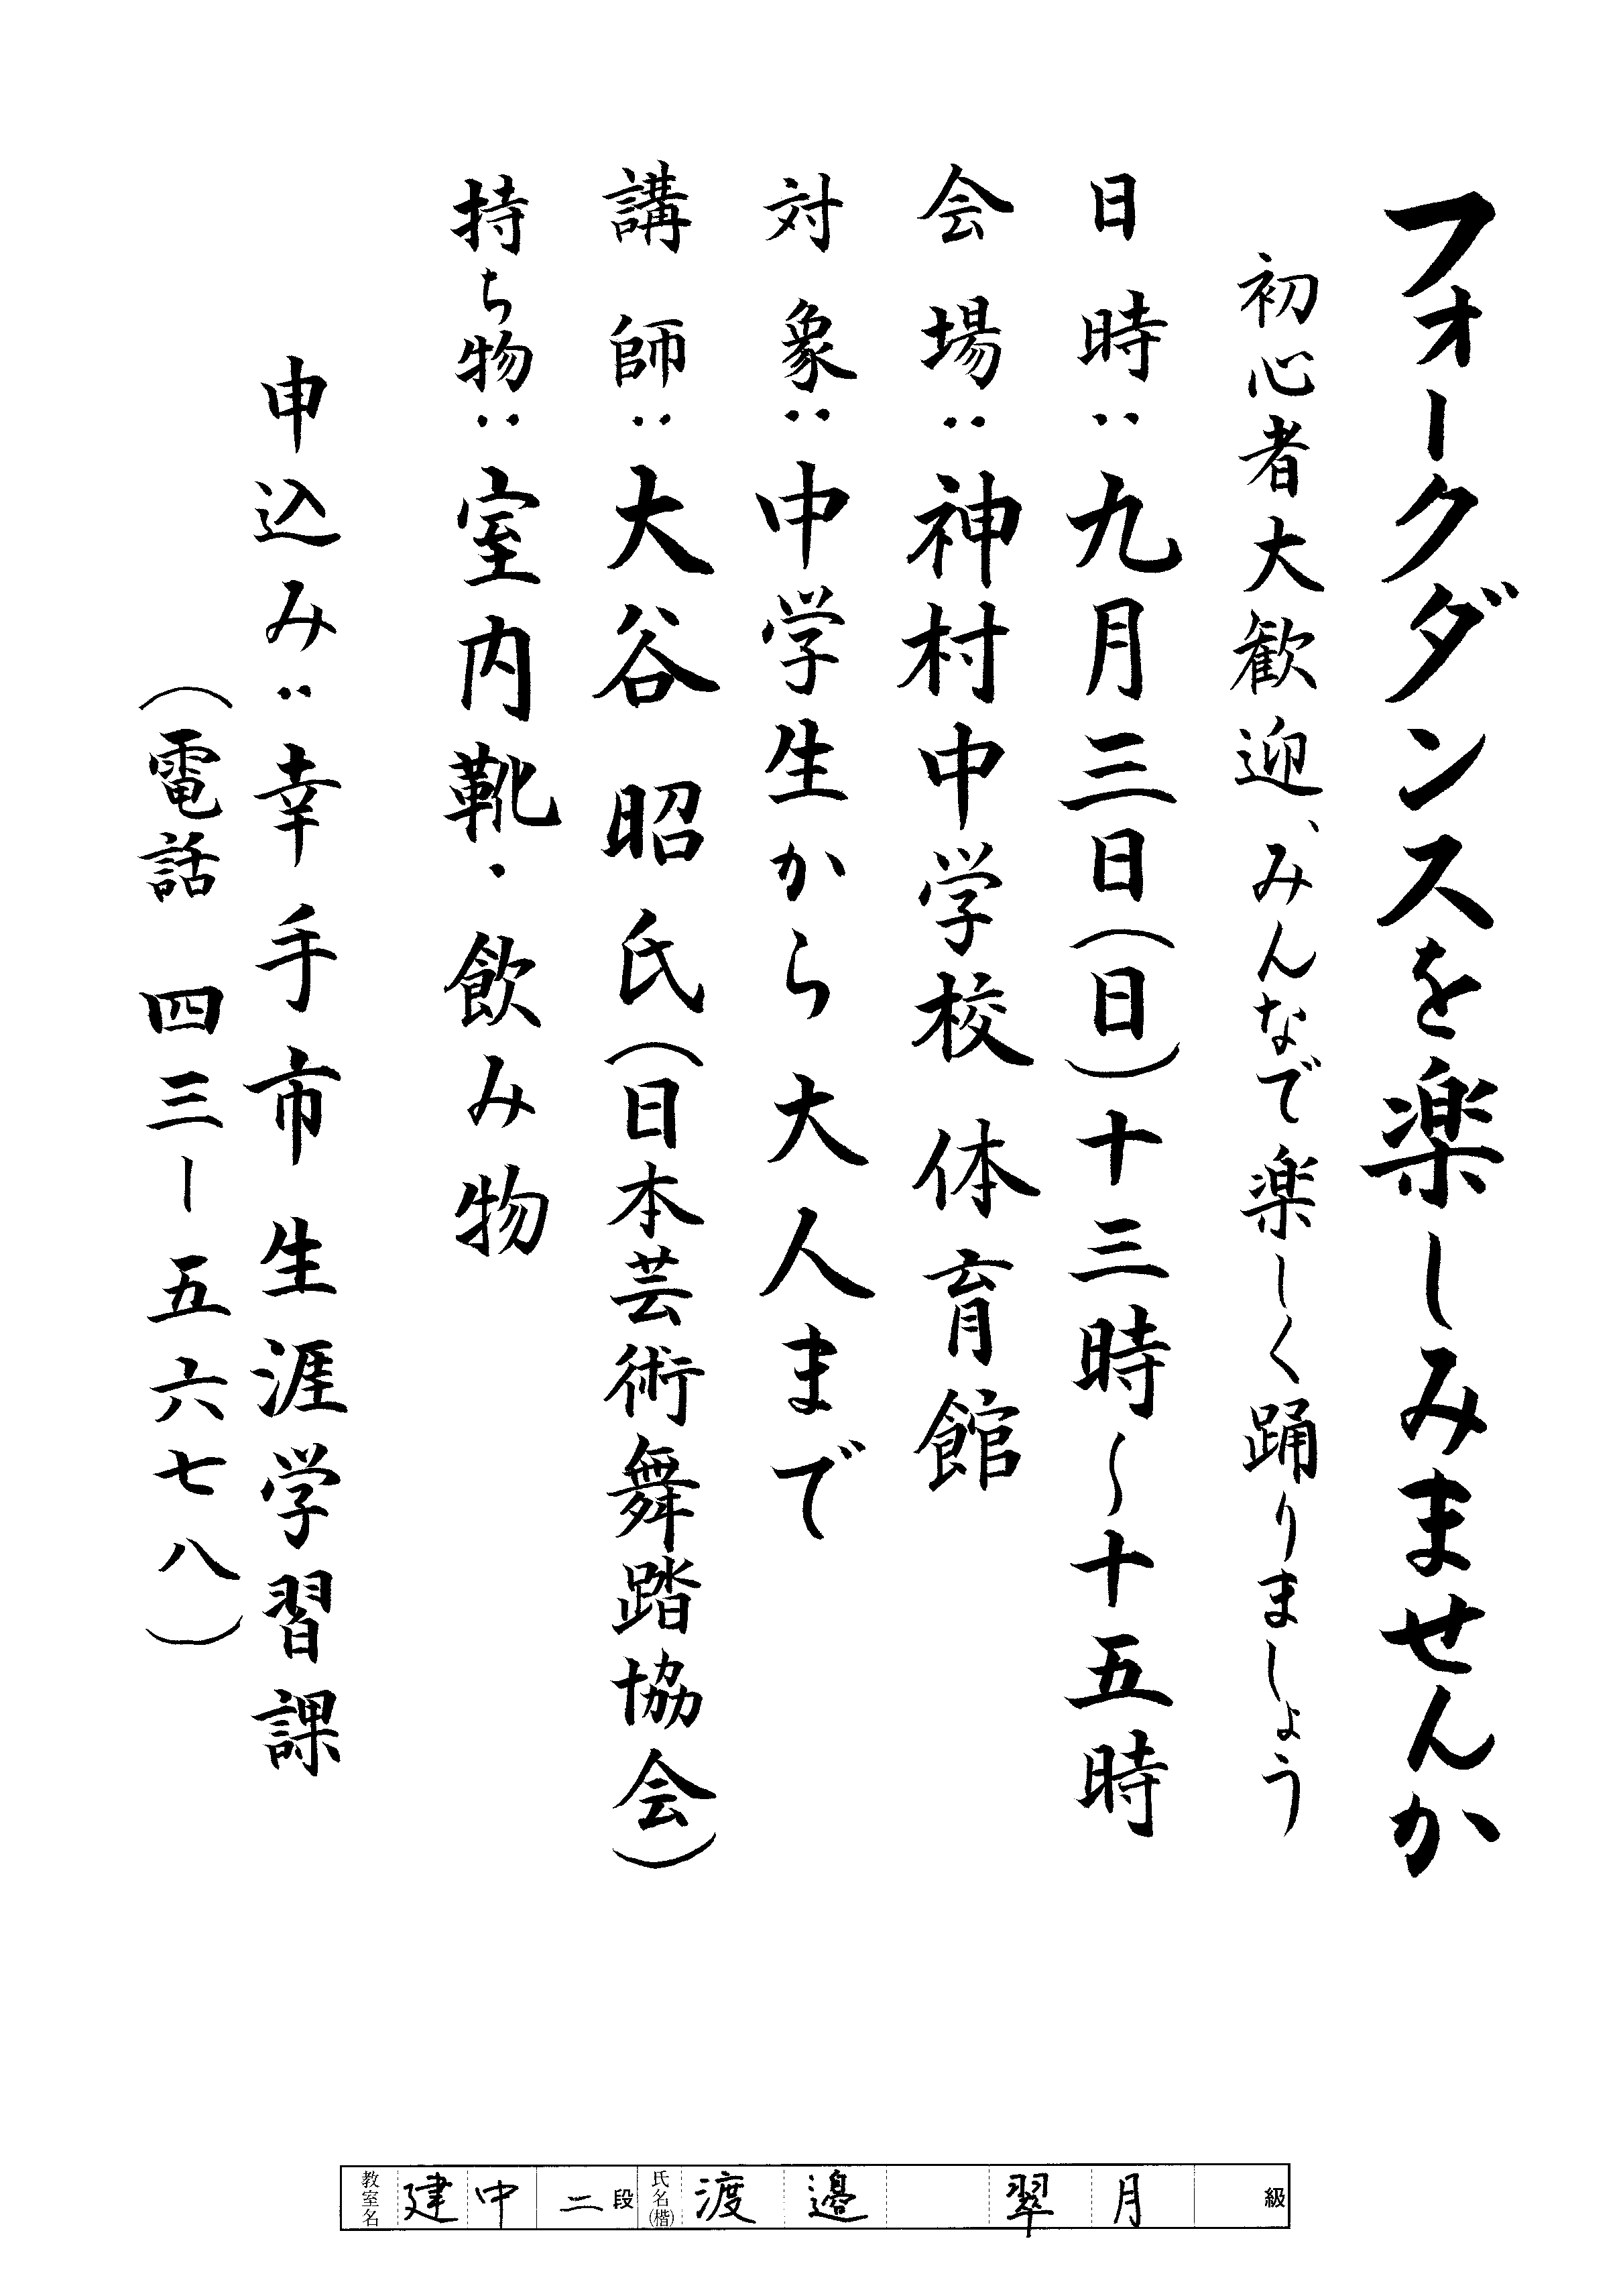 フォークダンスを楽しみませんか
初心者大歓迎、みんなで楽しく踊りましょう
日時：九月三日（日）十三時～十五時
会場：神村中学校 体育館
対象：中学生から大人まで
講師：大谷 昭氏（日本芸術舞踏協会）
持ち物：室内靴・飲み物
申込み：幸手市生涯学習課
（電話 四三ー五六七八）
教室名 建中 二段 氏名(楷) 渡邉 翠月 級